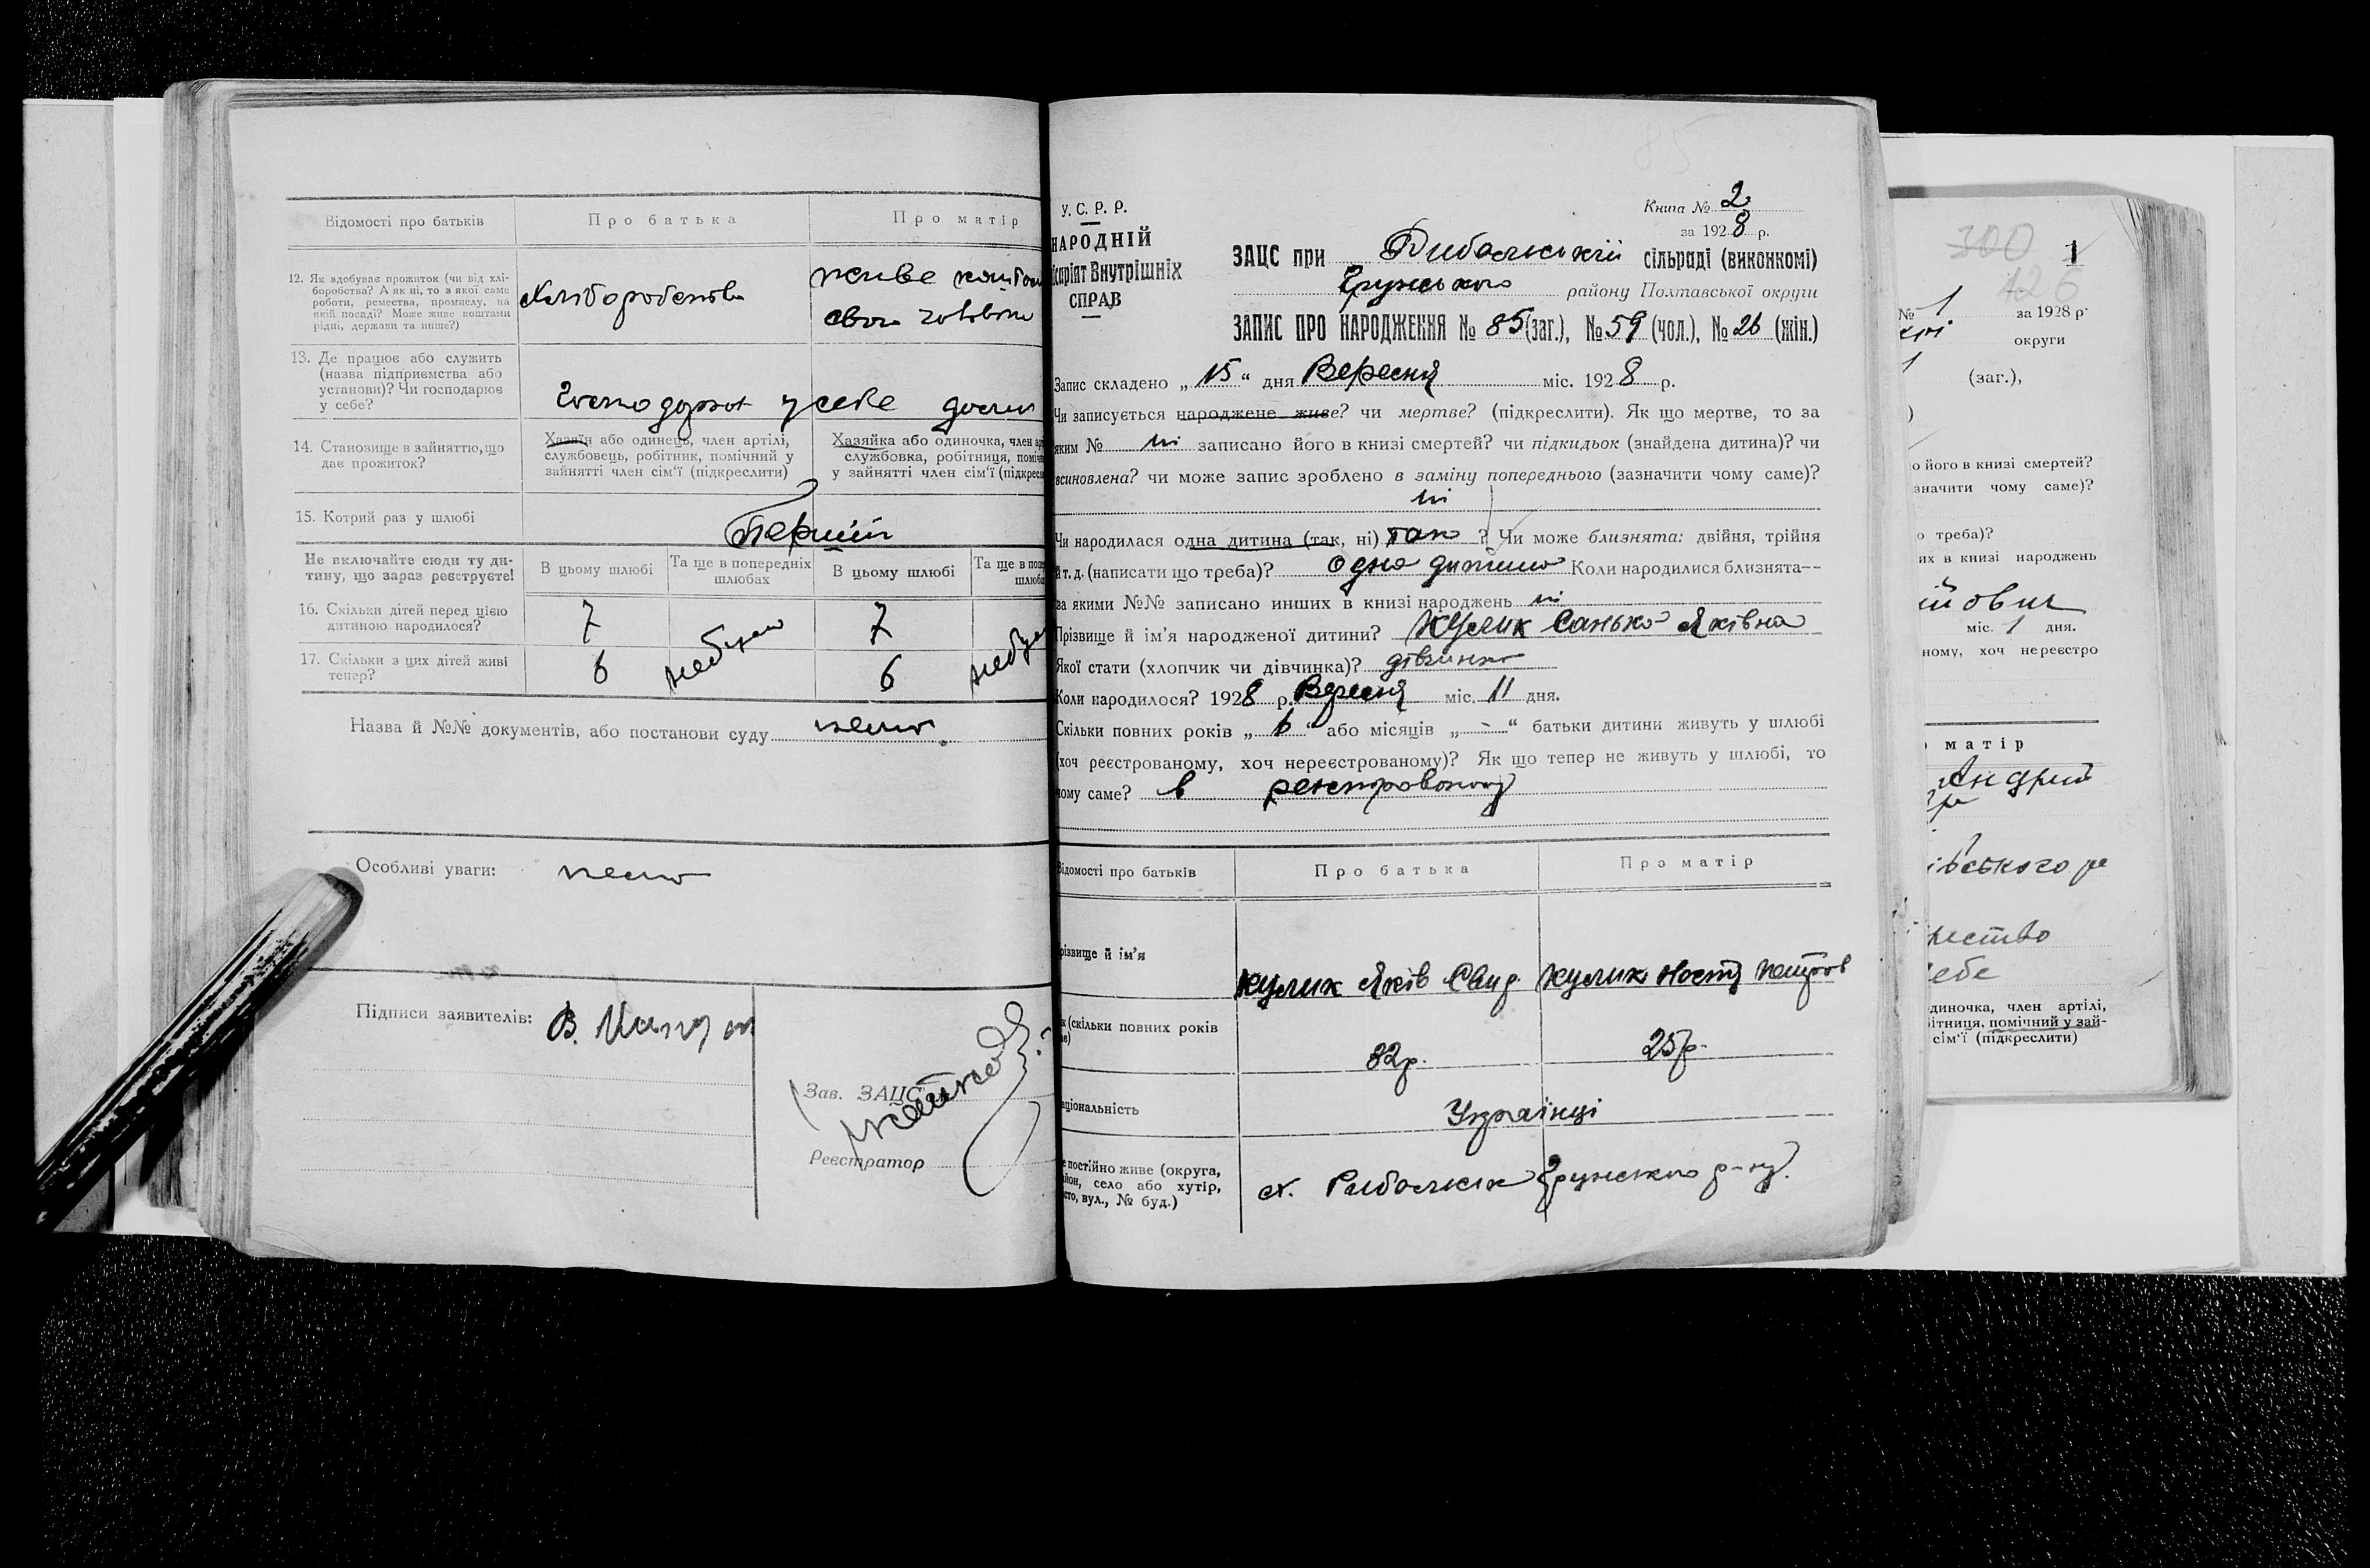 Відомості про батьків
Про батька
Про матір
12. Як здобуває прожиток (чи від хлі-
боробства? А як ні, то з якої саме
роботи, ремества, промислу, на
якій посаді? Може живе коштами
рідні, держави та инше?)
Хліборобство
живе
свого
13. Де працює або служить
(назва підприємства або
установи)? Чи господарює
у себе?
у себе
14. Становище в зайняттю, що
дає прожиток?
Хазяїн або одинець, член артілі,
службовець, робітник, помічний у
зайнятті член сім'ї (підкреслити)
Хазяйка або одиночка, член
службовка, робітниця,
у зайнятті член сім'ї
15. Котрий раз у шлюбі
Перший
Не включайте сюди ту ди-
тину, що зараз реєструєте!
В цьому шлюбі
Та ще в попередніх
шлюбах
В цьому шлюбі
Та ще в
16. Скільки дітей перед цією
дитиною народилося?
7
7
17. Скільки з цих дітей живі
тепер?
6
6
Назва й №№ документів, або постанови суду
Особливі уваги:
Підписи заявителів: В.
Зав. ЗАЦС
Реєстратор
У. С. Р. Р.
НАРОДНІЙ
Внутрішніх
СПРАВ
Книга № 2
за 1928 р.
ЗАЦС при Рибальській сільраді (виконкомі)
Грунського району Полтавської округи
ЗАПИС ПРО НАРОДЖЕННЯ № 85 (заг.), № 59 (чол.), № 26 (жін.)
Запис складено „15“ дня Вересня міс. 1928 р.
Чи записується народжене живе? чи мертве? (підкреслити). Як що мертве, то за
яким № ні записано його в книзі смертей? чи підкидьок (знайдена дитина)? чи
всиновлена? чи може запис зроблено в заміну попереднього (зазначити чому саме)?
ні
Чи народилася одна дитина (так, ні) так ? Чи може близнята: двійня, трійня
й т. д. (написати що треба)? одна дитина Коли народилися близнята--
за якими №№ записано инших в книзі народжень ні
Прізвище й ім'я народженої дитини? Кулик Санька Яківна
Якої стати (хлопчик чи дівчинка)? дівчинка
Коли народилося? 1928 р. Вересня міс. 11 дня.
Скільки повних років „6“ або місяців „-“ батьки дитини живуть у шлюбі
(хоч реєстрованому, хоч нереєстрованому)? Як що тепер не живуть у шлюбі, то
чому саме? в
Відомості про батьків
Про батька
Про матір
Прізвище й ім'я
Кулик Яків
Кулик Настя
(скільки повних років
32р.
25р.
Національність
Українці
постійно живе (округа,
село або хутір,
вул., № буд.)
Грунського р-ну.
300
126
1
№ 1 за 1928 р.
округи
(заг.),
його в книзі смертей?
чому саме)?
треба)?
их в книзі народжень
міс. 1 дня.
хоч
матір
себе
член артілі,
помічний у зай-
сім'ї (підкреслити)